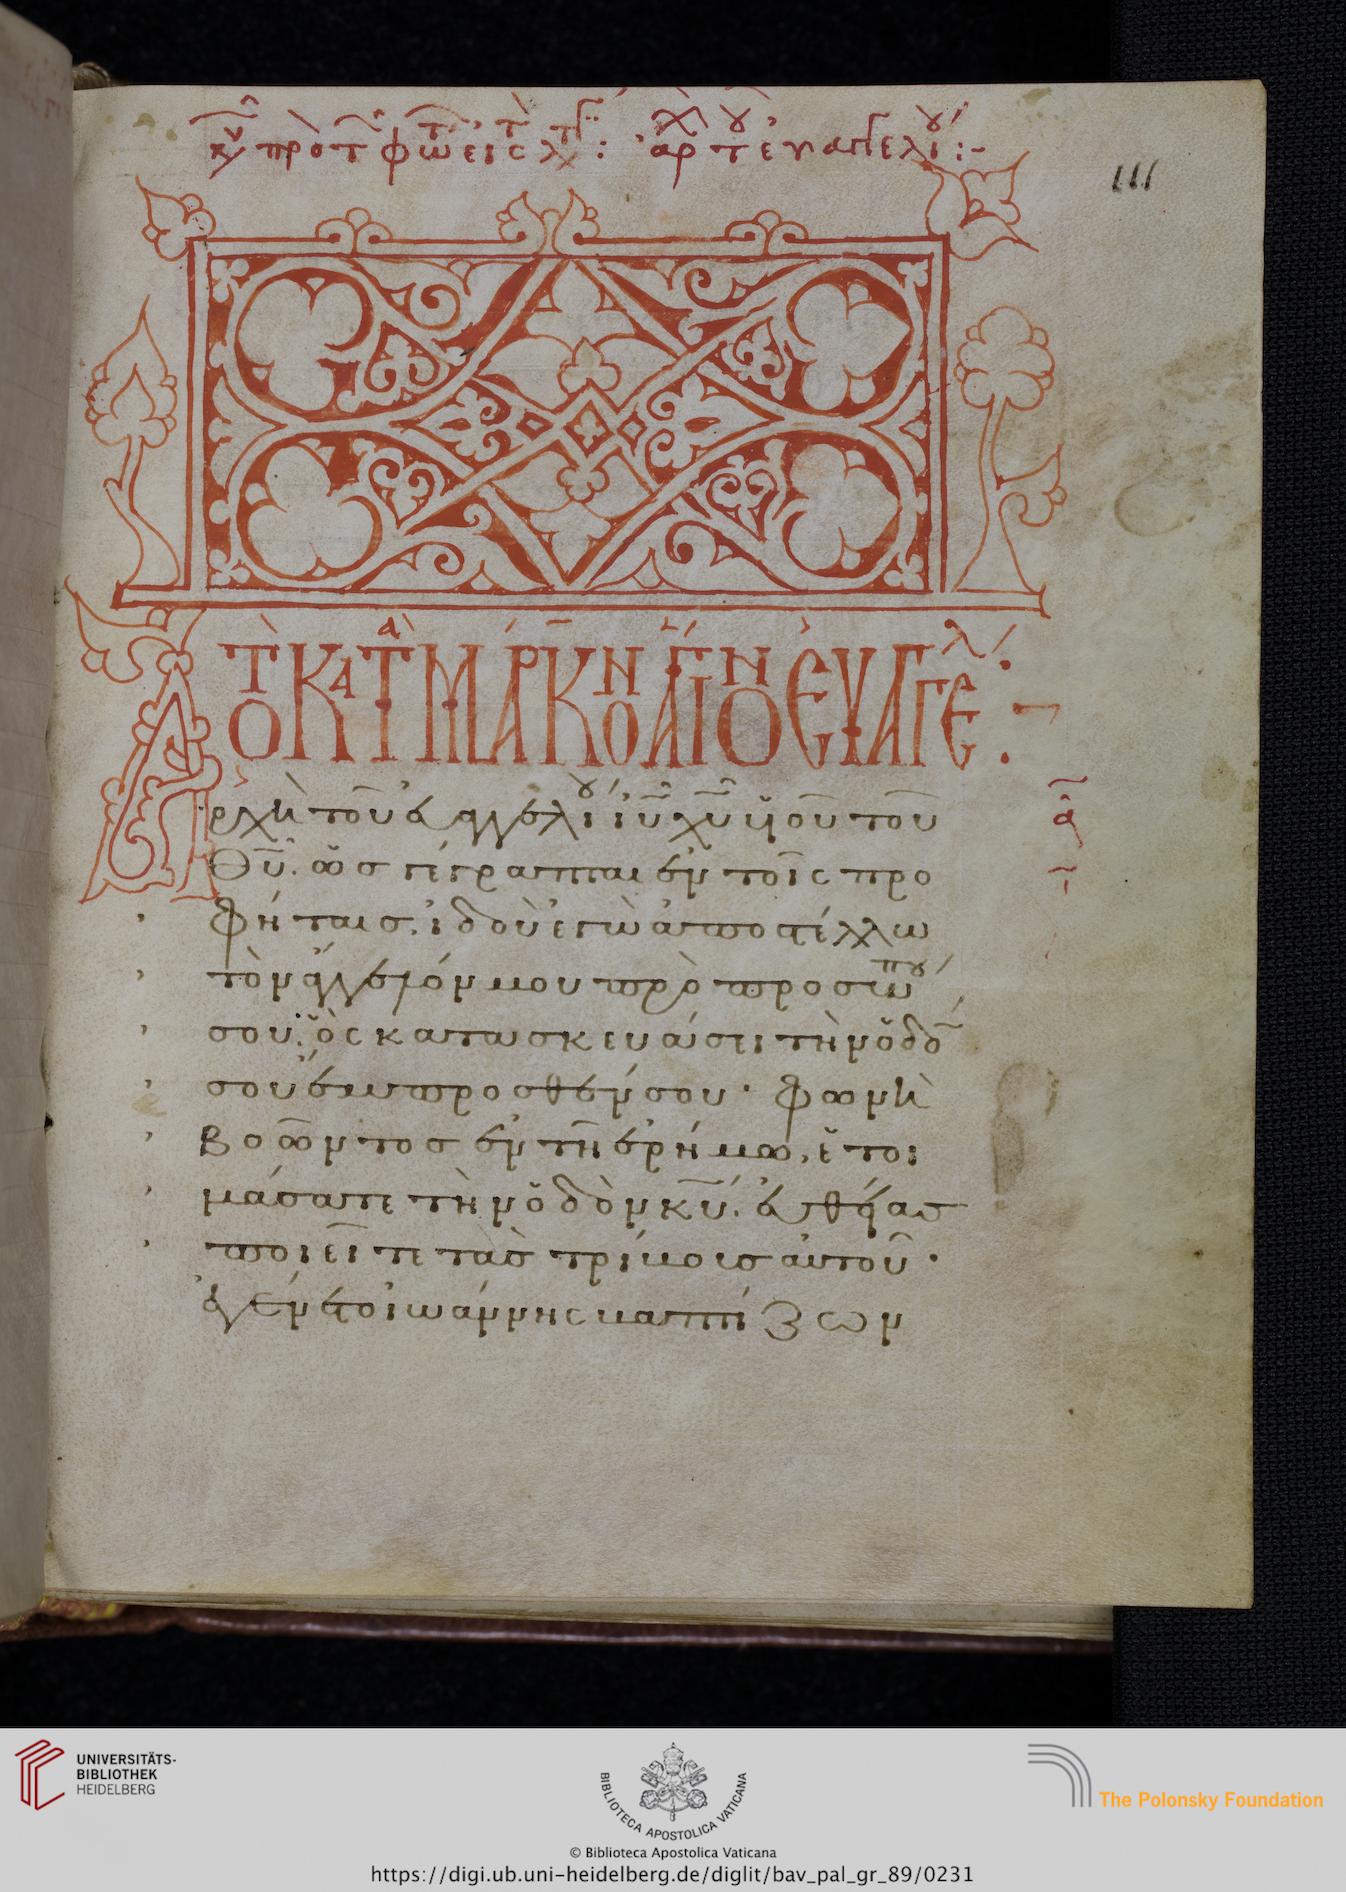 κυ προ τ φωτ εις τ : αρχ τ ευαγγελιου :-
111
ΤΟ ΚΑΤΑ ΜΑΡΚΟΝ ΑΓΙΟΝ ΕΥΑΓΓΕΛ :
Ἀρχὴ τοῦ εὐαγγελίου ἰῦ χῦ υἱοῦ τοῦ
ᾱ
θῦ. ὡς γέγραπται ἐν τοῖς προ
φήταις. ἰδοὺ ἐγὼ ἀποστέλλω
τὸν ἄγγελόν μου πρὸ προσώπου
σου. ὃς κατασκευάσει τὴν ὁδὸν
σου ἔμπροσθέν σου. φωνὴ
βοῶντος ἐν τῇ ἐρήμω, ἑτοι
μάσατε τὴν ὁδὸν κῡ. εὐθείας
ποιεῖτε τὰς τρίβους αὐτοῦ.
ἐγένετο ἰωάννης βαπτίζων
UNIVERSITÄTS-
BIBLIOTHEK
HEIDELBERG
BIBLIOTECA APOSTOLICA VATICANA
The Polonsky Foundation
© Biblioteca Apostolica Vaticana
https://digi.ub.uni-heidelberg.de/diglit/bav_pal_gr_89/0231